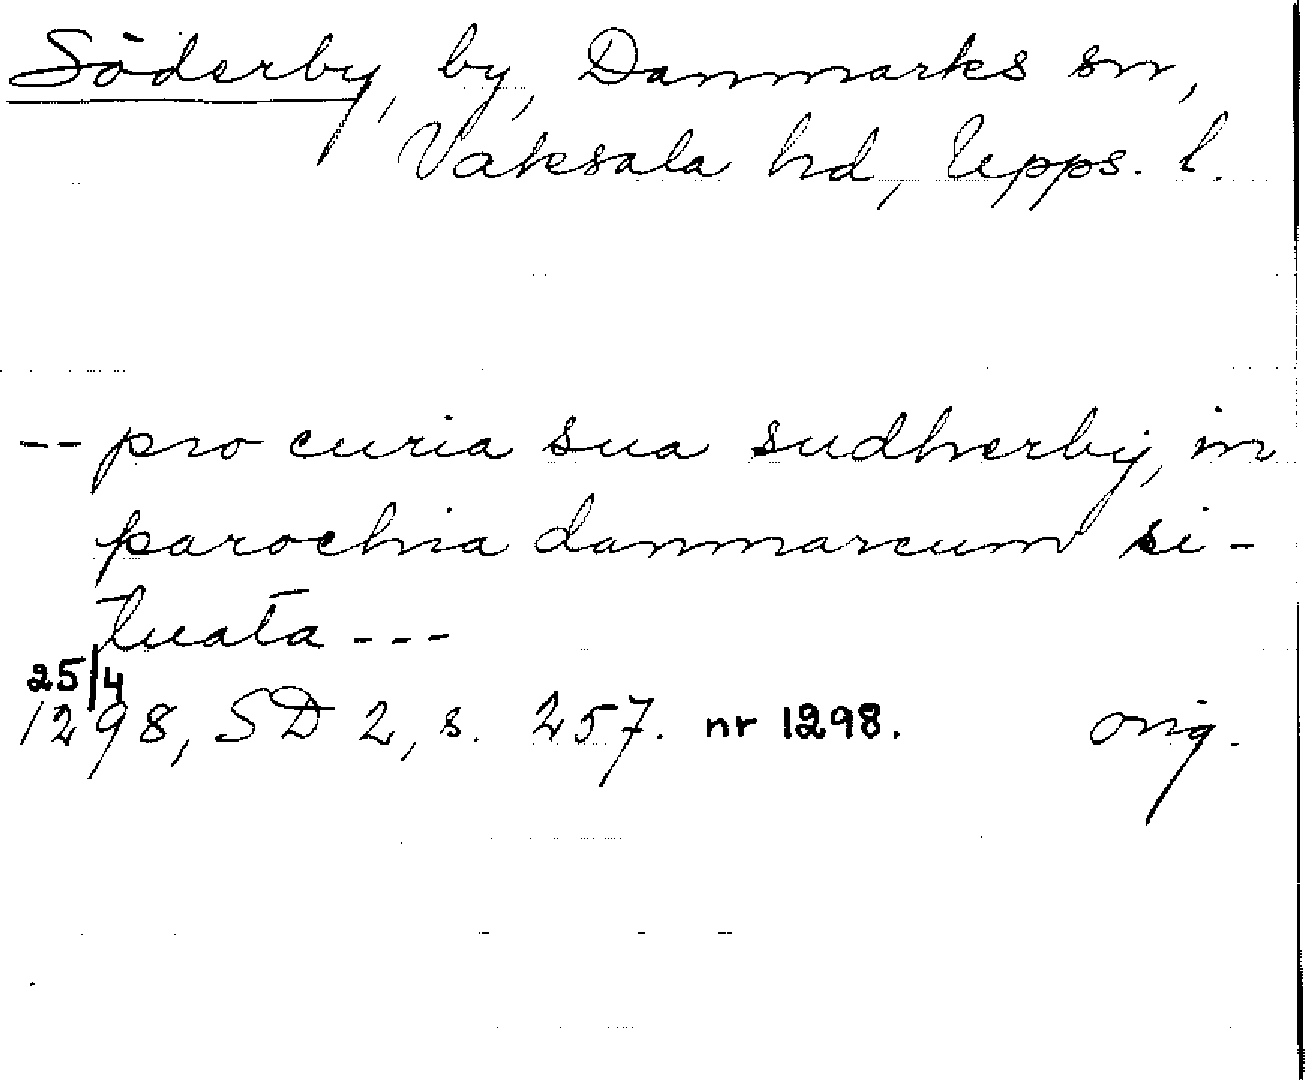 Söderby, by, Danmarks sn,
Vaksala hd, Upps. l.
-- pro curia sua sudherby, in
parochia danmarcum si-
tuata ---
25/4
1298, SD 2, s. 257. nr 1298. orig.